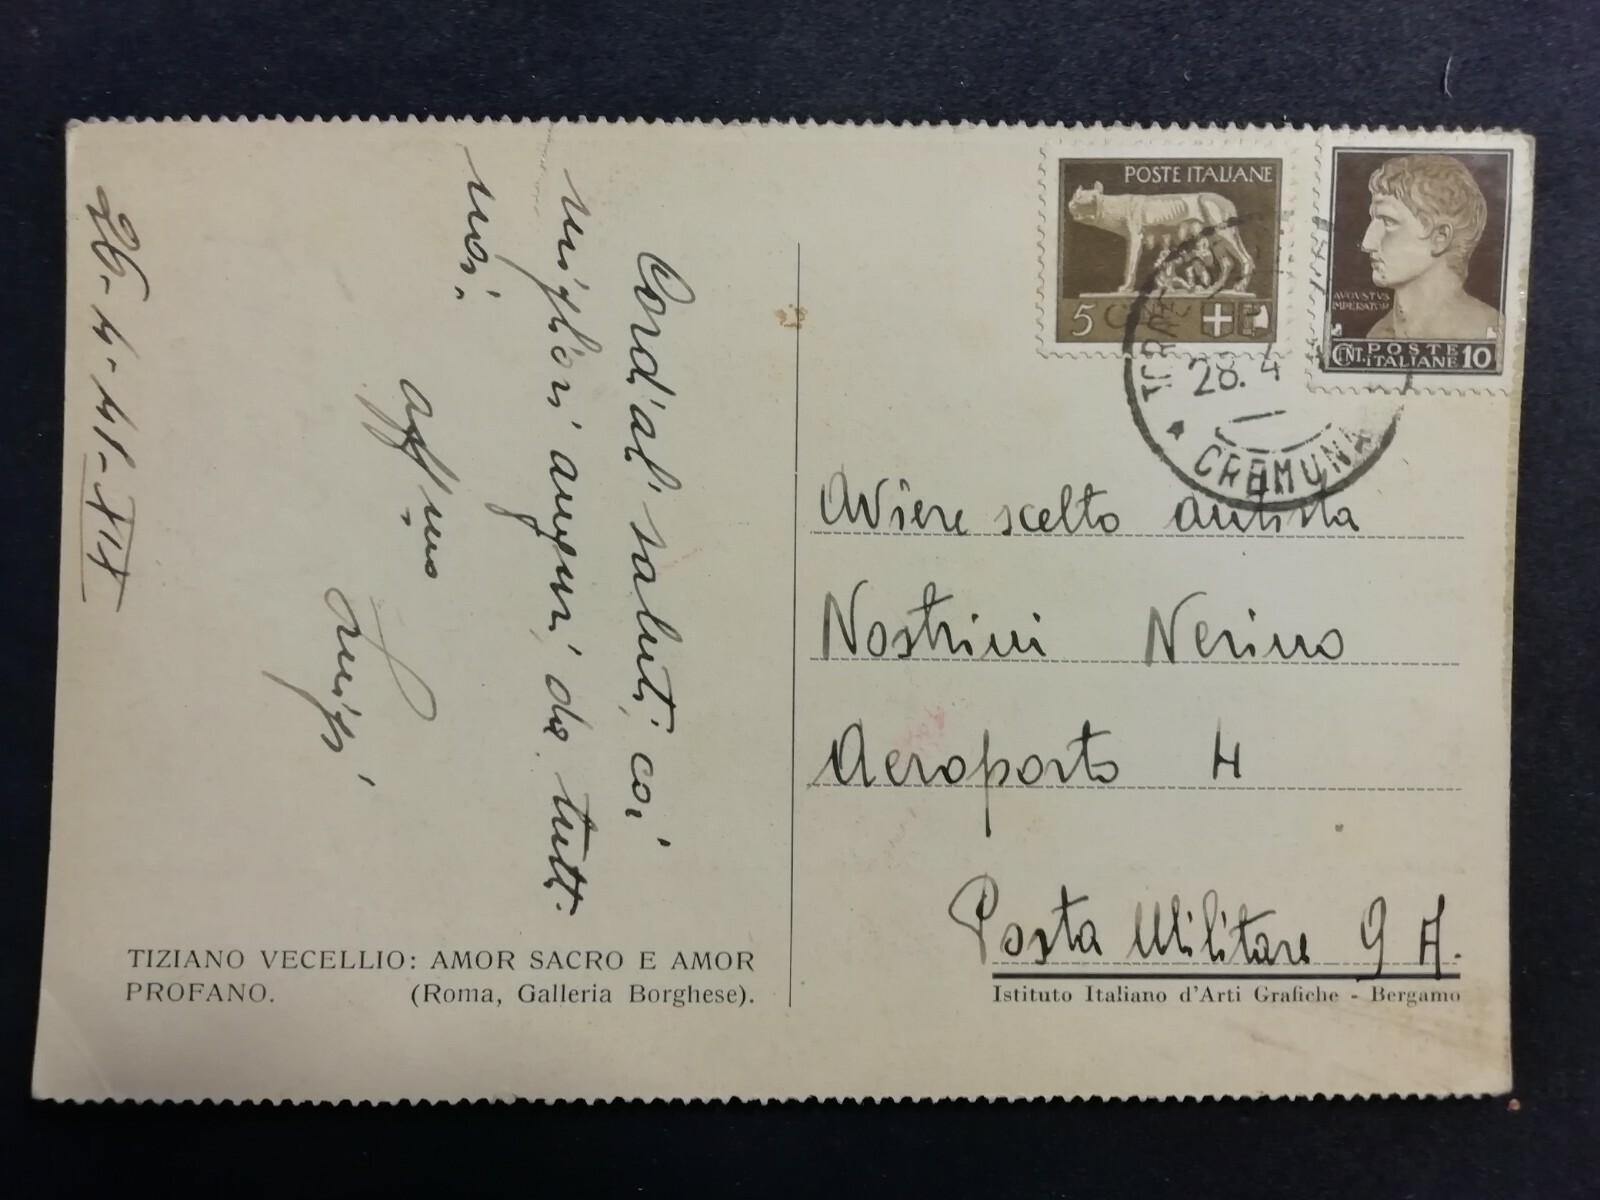 26-4-41-XIX
Cordiali saluti, coi
migliori auguri da tutti
noi.
aff/mo
Luigi
TIZIANO VECELLIO: AMOR SACRO E AMOR
PROFANO. (Roma, Galleria Borghese).
POSTE ITALIANE
5 C
AVGVSTVS
IMPERATOR
CENT. POSTE ITALIANE 10
28. 4
CREMONA
Aviere scelto autista
Nostrini Nerino
Aeroporto 4
Posta Militare 9 A.
Istituto Italiano d'Arti Grafiche - Bergamo